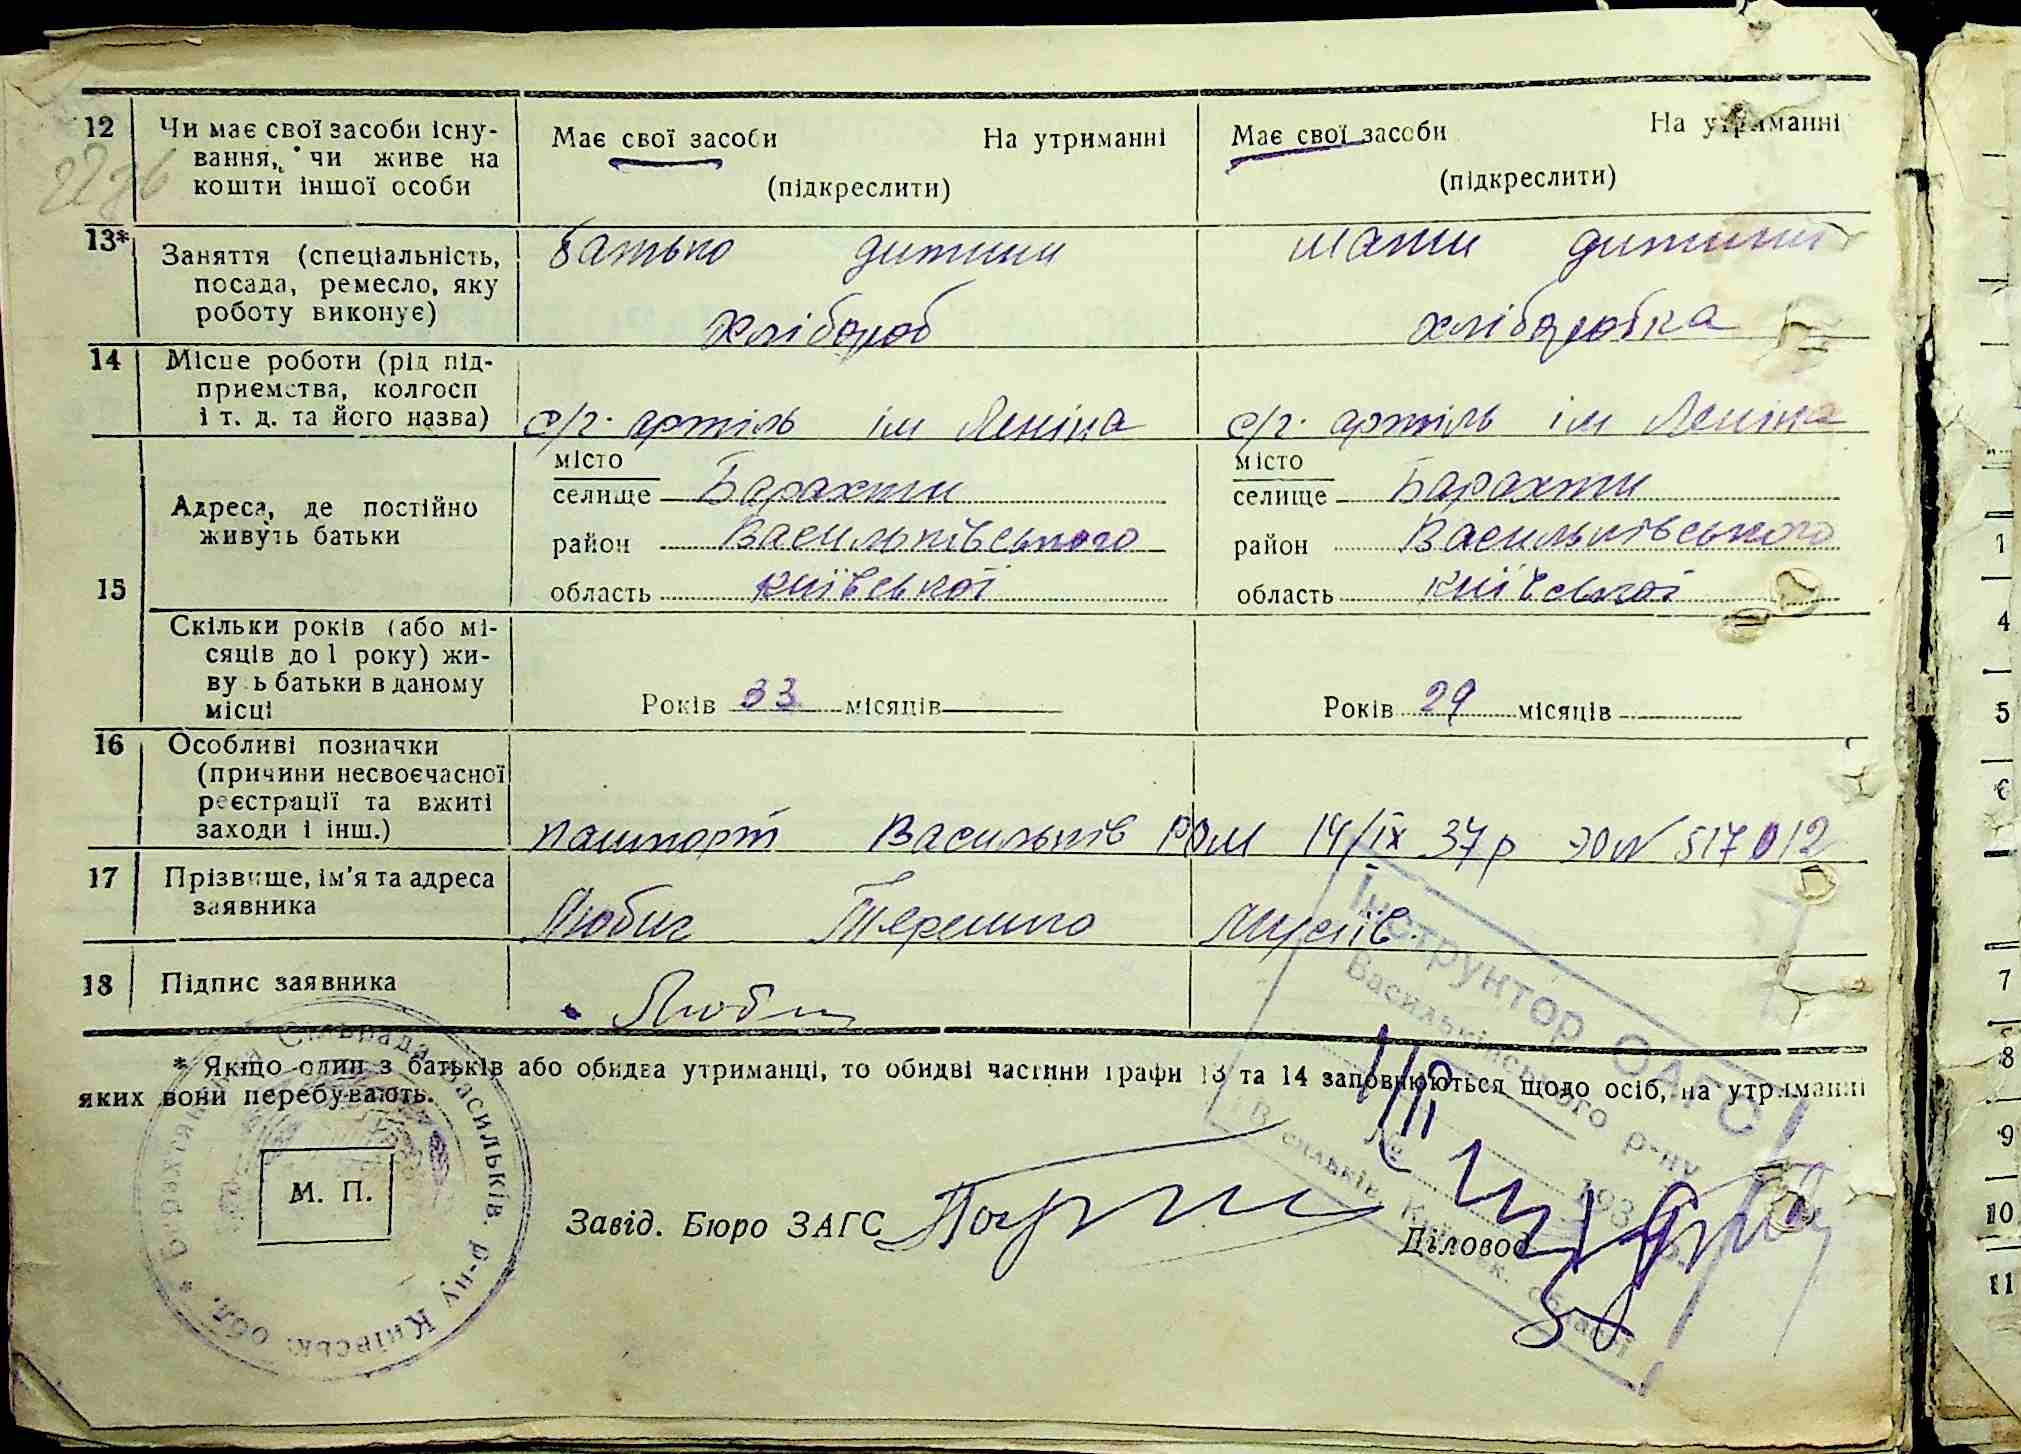 12 Чи має свої засоби існу-
вання, чи живе на
кошти іншої особи
Має свої засоби На утриманні
(підкреслити)
Має свої засоби На утриманні
(підкреслити)
13* Заняття (спеціальність,
посада, ремесло, яку
роботу виконує)
батько дитини
хлібороб
мати дитини
хліборобка
14 Місце роботи (рід під-
приємства, колгосп
і т. д. та його назва)
с/г. артіль ім Леніна
с/г. артіль ім Леніна
15 Адреса, де постійно
живуть батьки
місто
селище Барахти
район Васильківського
область Київської
місто
селище Барахти
район Васильківського
область Київської
Скільки років (або мі-
сяців до 1 року) жи-
ву ь батьки в даному
місці
Років 33 місяців
Років 29 місяців
16 Особливі позначки
(причини несвоєчасної
реєстрації та вжиті
заходи і інш.)
пашпорт Васильків РОМ 14/ІХ 37 р ЭО № 517012
17 Прізвище, ім'я та адреса
заявника
Любич Терешко Мусіїв.
18 Підпис заявника
Люби
* Якщо один з батьків або обидва утриманці, то обидві частини графи 13 та 14 заповнюються щодо осіб, на утриманні
яких вони перебувають.
М. П.
Завід. Бюро ЗАГС
Діловод
Інструктор ОАГС
Васильківського р-ну
№
193
м. Васильків, Київськ. області
Барахтянська Сільрада Васильків. р-ну Київськ. обл.